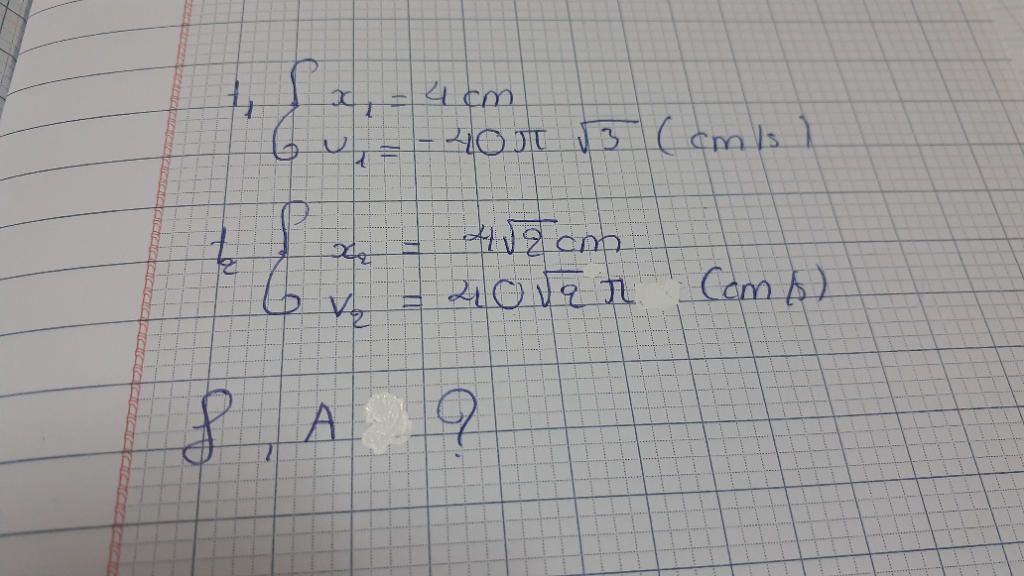 t₁ { x₁ = 4 cm
v₁ = -40π √3 (cm/s)
t₂ { x₂ = 4√2 cm
v₂ = 40√2 π (cm/s)
f, A ?